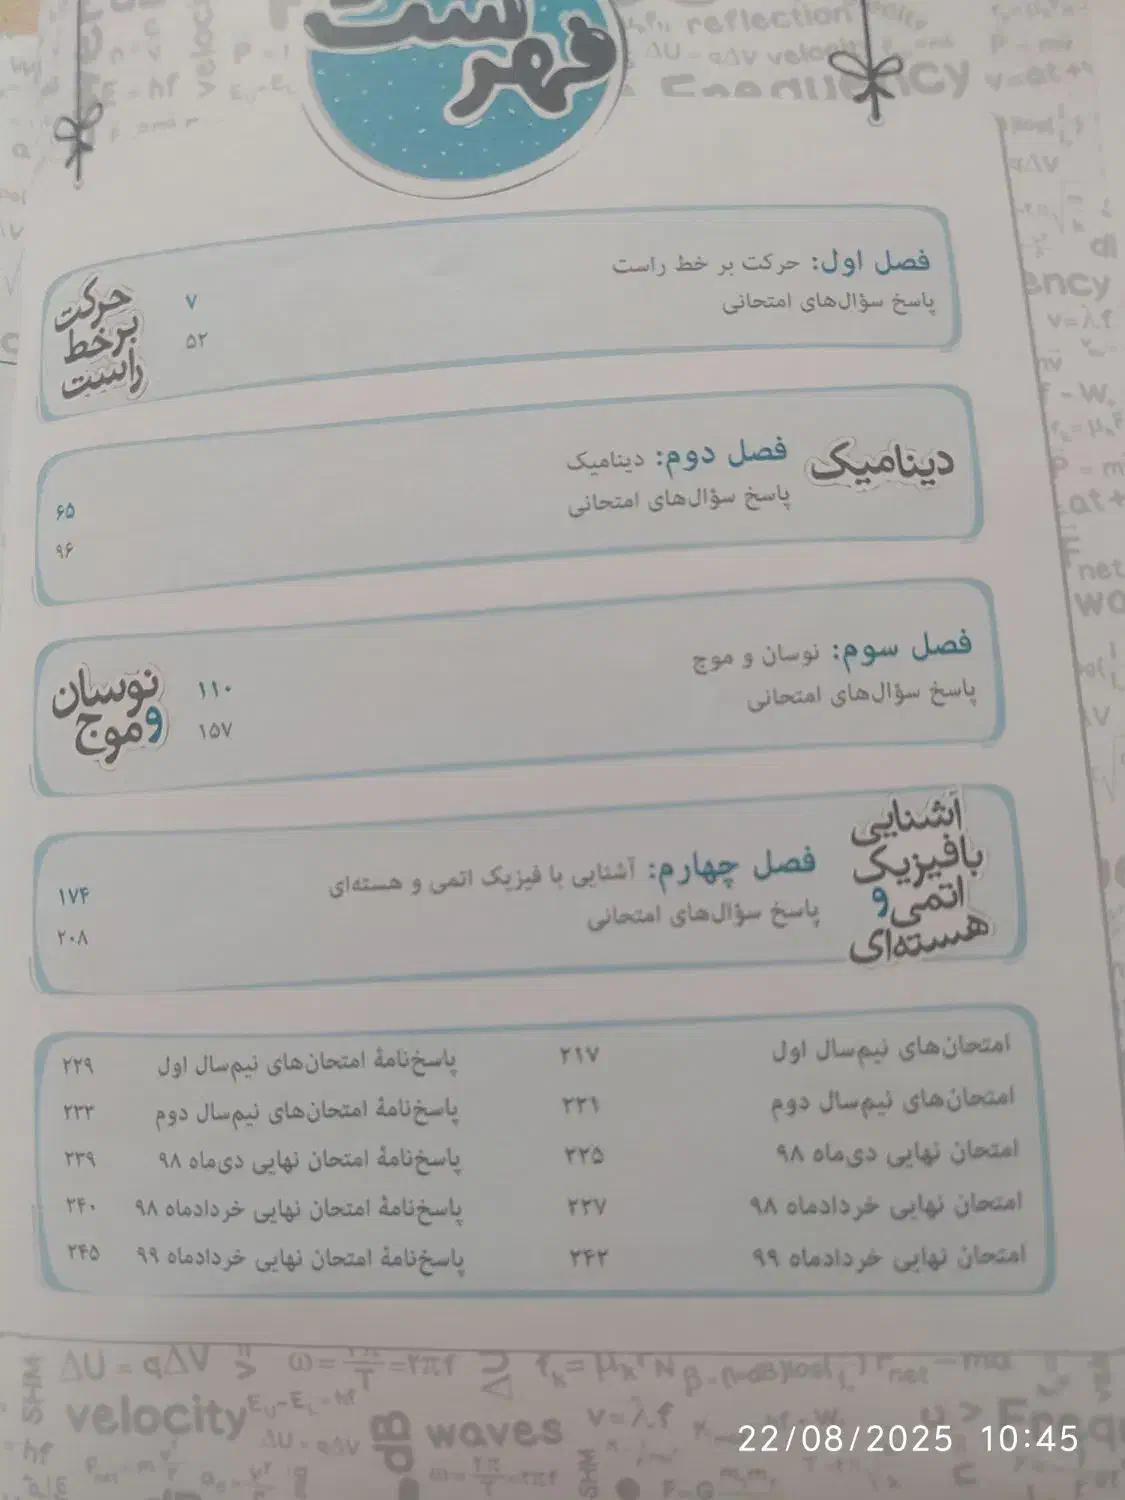 فهرست
فصل اول: حرکت بر خط راست ۷
پاسخ سؤال‌های امتحانی ۵۲
حرکت
بر خط
راست
دینامیک
فصل دوم: دینامیک ۶۵
پاسخ سؤال‌های امتحانی ۹۶
فصل سوم: نوسان و موج ۱۱۰
پاسخ سؤال‌های امتحانی ۱۵۷
نوسان
و موج
آشنایی
با فیزیک
اتمی و
هسته‌ای
فصل چهارم: آشنایی با فیزیک اتمی و هسته‌ای ۱۷۴
پاسخ سؤال‌های امتحانی ۲۰۸
امتحان‌های نیم‌سال اول ۲۱۷ پاسخ‌نامهٔ امتحان‌های نیم‌سال اول ۲۲۹
امتحان‌های نیم‌سال دوم ۲۲۱ پاسخ‌نامهٔ امتحان‌های نیم‌سال دوم ۲۳۳
امتحان نهایی دی‌ماه ۹۸ ۲۲۵ پاسخ‌نامهٔ امتحان نهایی دی‌ماه ۹۸ ۲۳۹
امتحان نهایی خردادماه ۹۸ ۲۲۷ پاسخ‌نامهٔ امتحان نهایی خردادماه ۹۸ ۲۴۰
امتحان نهایی خردادماه ۹۹ ۲۴۳ پاسخ‌نامهٔ امتحان نهایی خردادماه ۹۹ ۲۴۵
ΔU = qΔV
velocity
dB waves
v=λf
22/08/2025 10:45